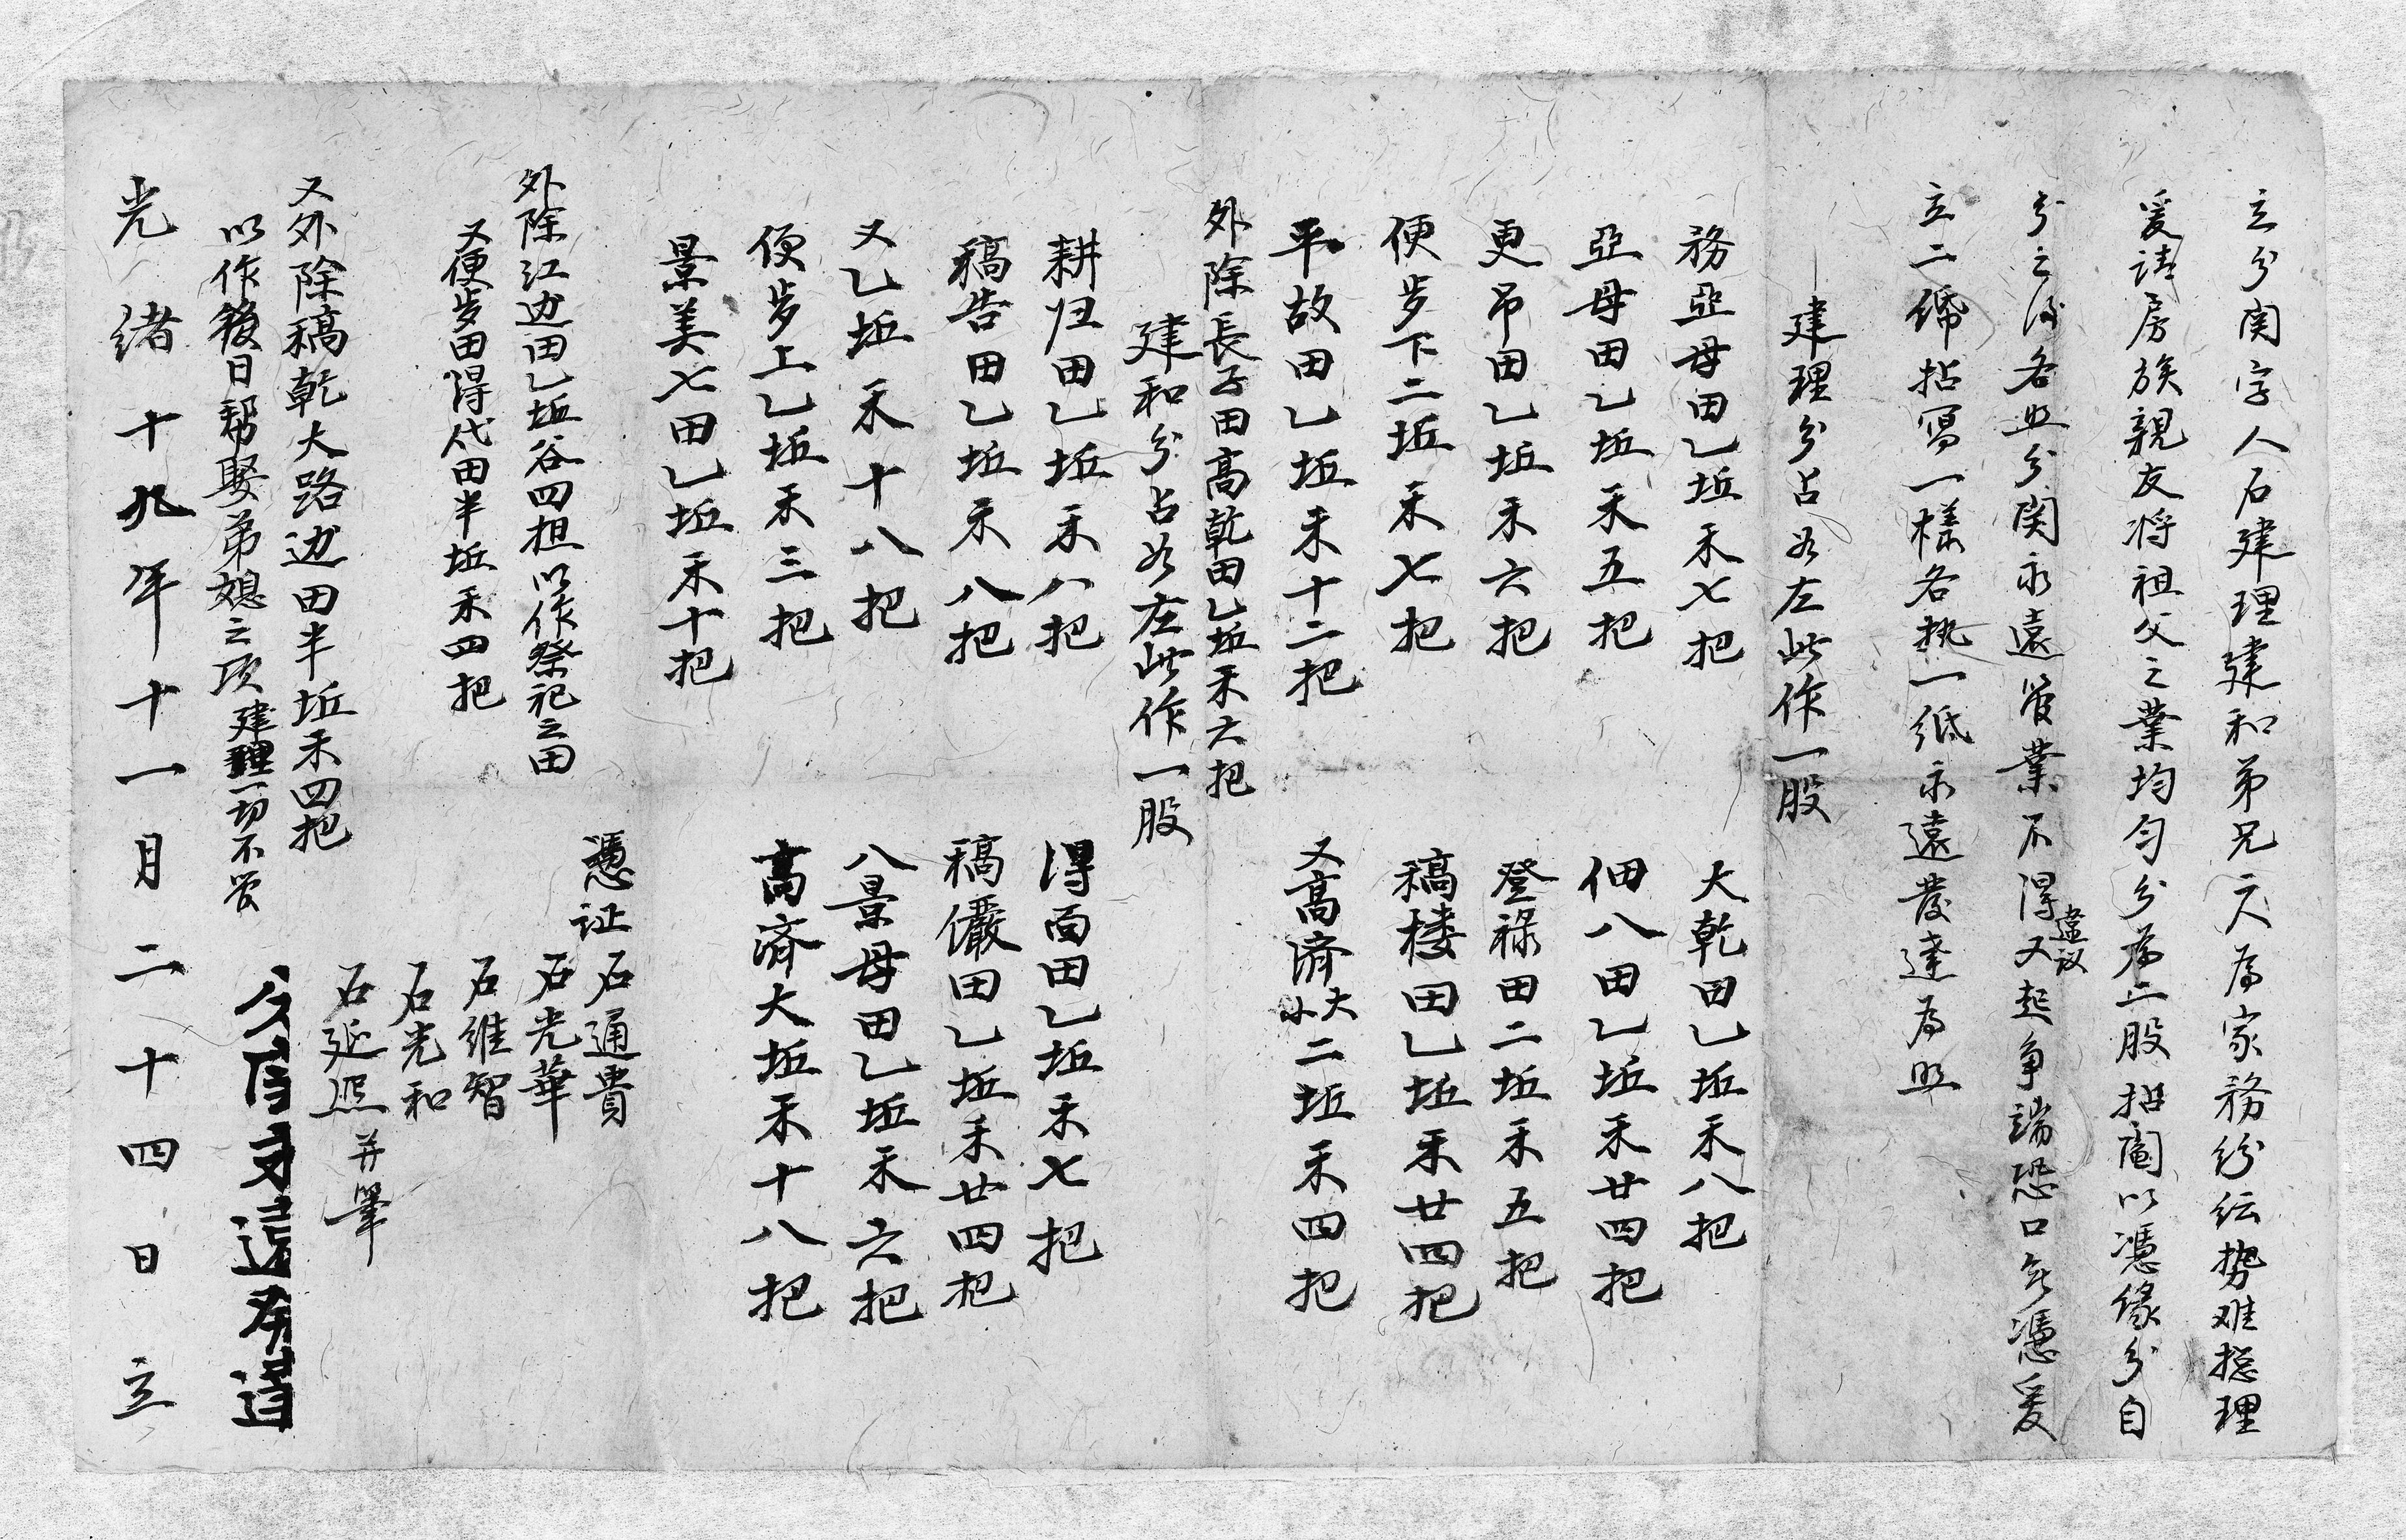 立分関字人石建理建和弟兄二人為家務紛紜势难揔理
爰請房族親友将祖父之業均匀分為二股拈阄以憑缘分自
分之後各照分関永遠管業不得違议又起争端恐口无憑爰
立二張拈寫一樣各执一纸永遠發達為照
建理分占於左此作一股
務亞母田乙坵禾七把
大乾田乙坵禾八把
亞母田乙坵禾五把
佃八田乙坵禾廿四把
更吊田乙坵禾六把
登禄田二坵禾五把
便步下二坵禾七把
稿楼田乙坵禾廿四把
平故田乙坵禾十二把
又高済大小二坵禾四把
外除長子田高乾田乙坵禾六把
建和分占於左此作一股
耕归田乙坵禾八把
得面田乙坵禾七把
稿告田乙坵禾八把
稿儼田乙坵禾廿四把
又乙坵禾十八把
八景母田乙坵禾六把
便步上乙坵禾三把
高済大坵禾十八把
景美七田乙坵禾十把
外除江边田乙坵谷四担以作祭祀之田
又便步田得代田半坵禾四把
憑证
石通貴
石光華
石維智
石光和
石延照并筆
又外除稿乾大路边田半坵禾四把
以作後日帮娶弟媳之项建理一切不管
光緒十九年十一月二十四日立